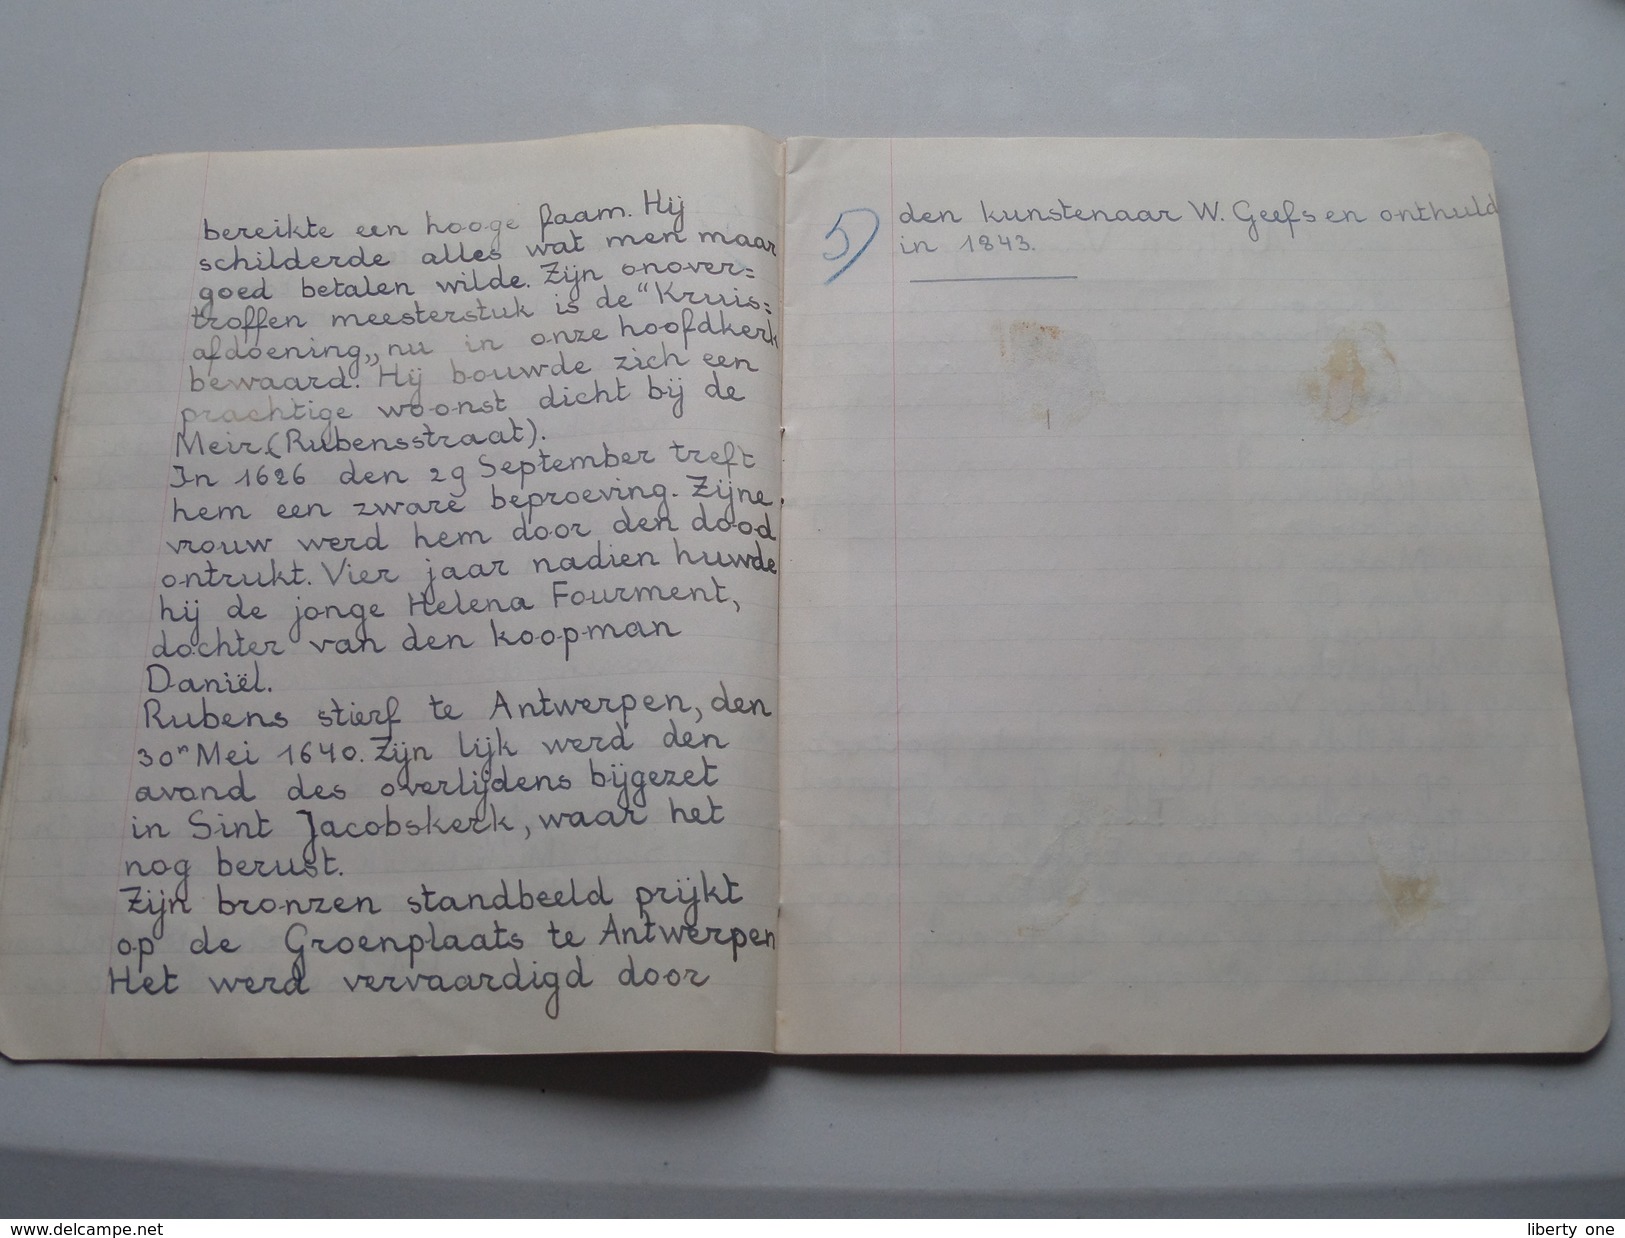 bereikte een hooge faam. Hij
schilderde alles wat men maar
goed betalen wilde. Zijn onover=
troffen meesterstuk is de "Kruis=
afdoening,, nu in onze hoofdkerk
bewaard. Hij bouwde zich een
prachtige woonst dicht bij de
Meir. (Rubensstraat).
In 1626 den 29 September treft
hem een zware beproeving. Zijne
vrouw werd hem door den dood
ontrukt. Vier jaar nadien huwde
hij de jonge Helena Fourment,
dochter van den koopman
Daniël.
Rubens stierf te Antwerpen, den
30n Mei 1640. Zijn lijk werd den
avond des overlijdens bijgezet
in Sint Jacobskerk, waar het
nog berust.
Zijn bronzen standbeeld prijkt
op de Groenplaats te Antwerpen
Het werd vervaardigd door
5)
den kunstenaar W. Geefs en onthuld
in 1843.
www.delcampe.net
liberty one